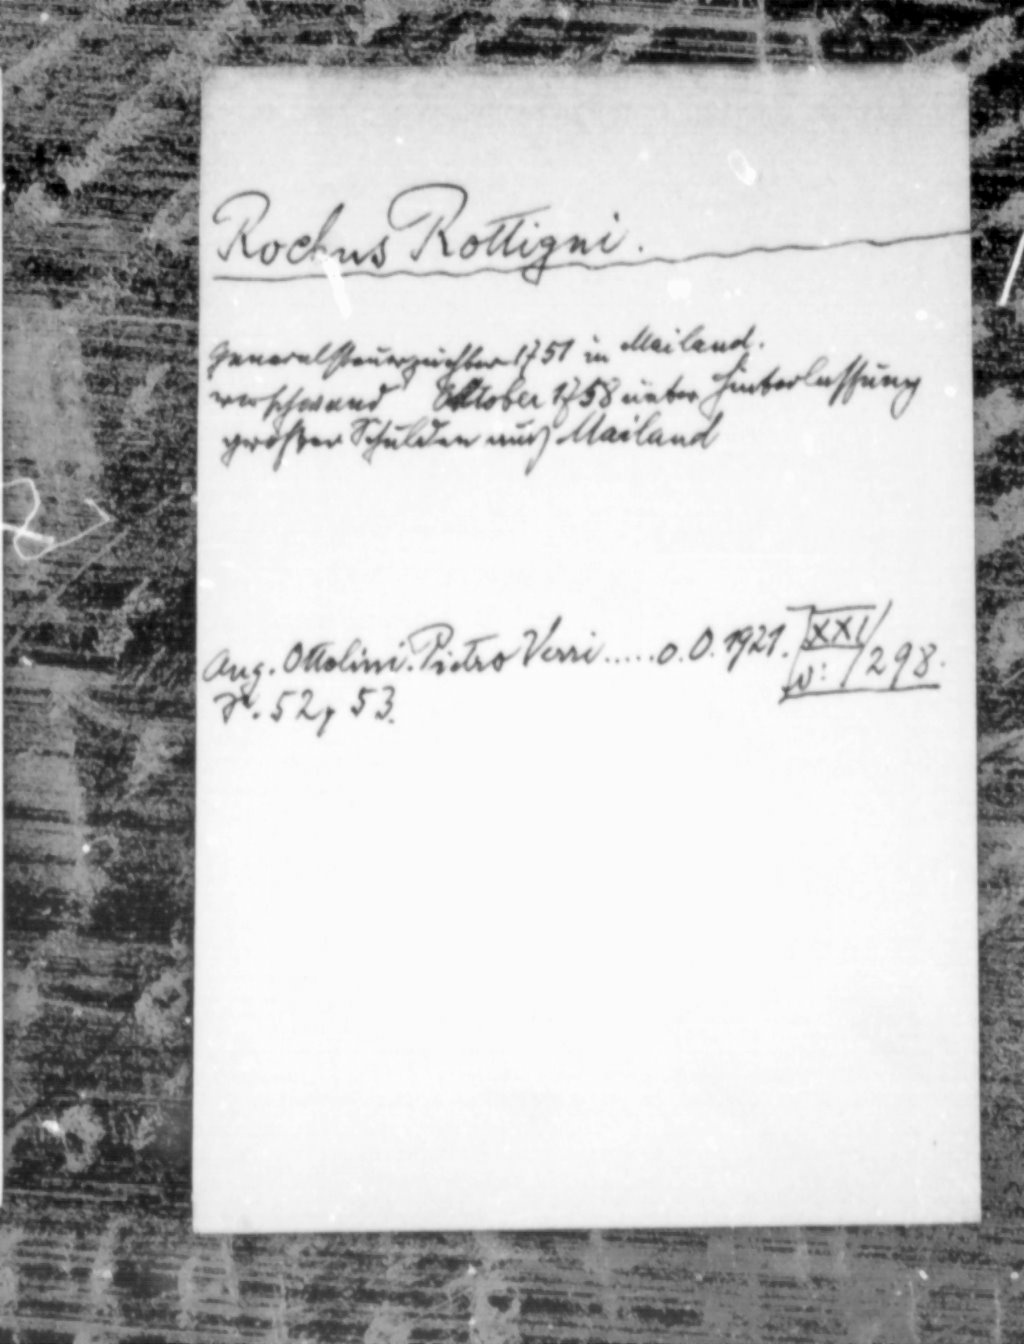 Rochus Rottigni.
Generalsteuerpächter 1751 in Mailand.
verschwand Oktober 1758 unter Hinterlassung
großer Schulden aus Mailand
Aug. Ottolini. Pietro Verri.....o.O. 1921. XXI/
v: 298.
S. 52, 53.